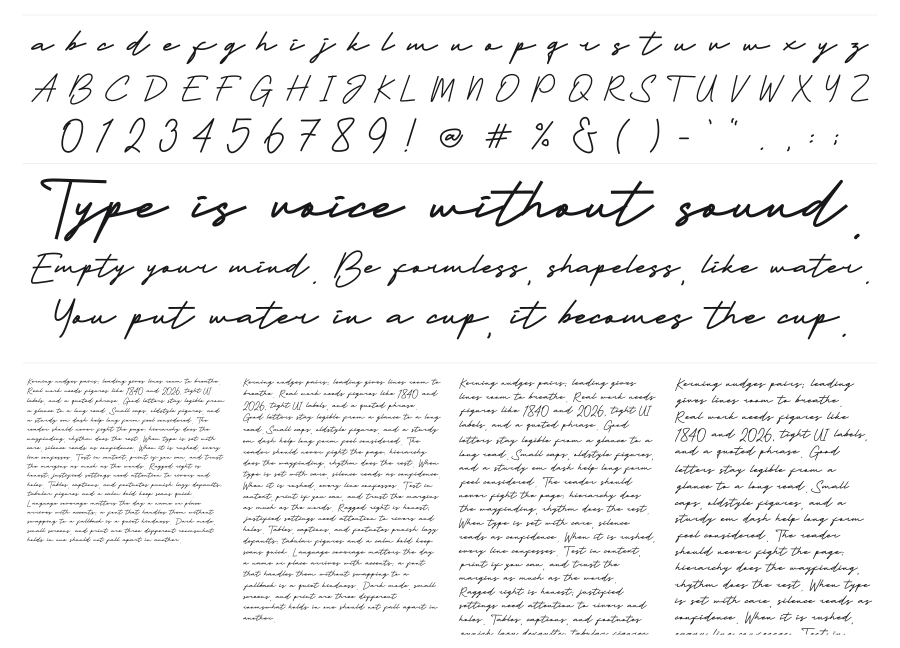 a b c d e f g h i j k l m n o p q r s t u v w x y z
A B C D E F G H I J K L M N O P Q R S T U V W X Y Z
0 1 2 3 4 5 6 7 8 9 ! @ # % & ( ) - ' " . , : ;
Type is voice without sound.
Empty your mind. Be formless, shapeless, like water.
You put water in a cup, it becomes the cup.
Kerning nudges pairs; leading gives lines room to breathe.
Real work needs figures like 1840 and 2026, tight UI
labels, and a quoted phrase. Good letters stay legible from
a glance to a long read. Small caps, oldstyle figures, and
a sturdy em dash help long form feel considered. The
reader should never fight the page; hierarchy does the
wayfinding, rhythm does the rest. When type is set with
care, silence reads as confidence. When it is rushed, every
line confesses. Test in context, print if you can, and trust
the margins as much as the words. Ragged right is
honest; justified settings need attention to rivers and
holes. Tables, captions, and footnotes punish lazy defaults;
tabular figures and a calm bold keep scans quick.
Language coverage matters the day a name or place
arrives with accents; a font that handles them without
swapping to a fallback is a quiet kindness. Dark mode,
small screens, and print are three different rooms; what
holds in one should not fall apart in another.
Kerning nudges pairs; leading gives lines room to
breathe. Real work needs figures like 1840 and
2026, tight UI labels, and a quoted phrase.
Good letters stay legible from a glance to a long
read. Small caps, oldstyle figures, and a sturdy
em dash help long form feel considered. The
reader should never fight the page; hierarchy
does the wayfinding, rhythm does the rest. When
type is set with care, silence reads as confidence.
When it is rushed, every line confesses. Test in
context, print if you can, and trust the margins
as much as the words. Ragged right is honest;
justified settings need attention to rivers and
holes. Tables, captions, and footnotes punish lazy
defaults; tabular figures and a calm bold keep
scans quick. Language coverage matters the day
a name or place arrives with accents; a font
that handles them without swapping to a
fallback is a quiet kindness. Dark mode, small
screens, and print are three different
rooms; what holds in one should not fall apart in
another.
Kerning nudges pairs; leading gives
lines room to breathe. Real work needs
figures like 1840 and 2026, tight UI
labels, and a quoted phrase. Good
letters stay legible from a glance to a
long read. Small caps, oldstyle figures,
and a sturdy em dash help long form
feel considered. The reader should
never fight the page; hierarchy does
the wayfinding, rhythm does the rest.
When type is set with care, silence
reads as confidence. When it is rushed,
every line confesses. Test in context,
print if you can, and trust the
margins as much as the words.
Ragged right is honest; justified
settings need attention to rivers and
holes. Tables, captions, and footnotes
punish lazy defaults; tabular figures
Kerning nudges pairs; leading
gives lines room to breathe.
Real work needs figures like
1840 and 2026, tight UI labels,
and a quoted phrase. Good
letters stay legible from a
glance to a long read. Small
caps, oldstyle figures, and a
sturdy em dash help long form
feel considered. The reader
should never fight the page;
hierarchy does the wayfinding,
rhythm does the rest. When type
is set with care, silence reads as
confidence. When it is rushed,
every line confesses. Test in